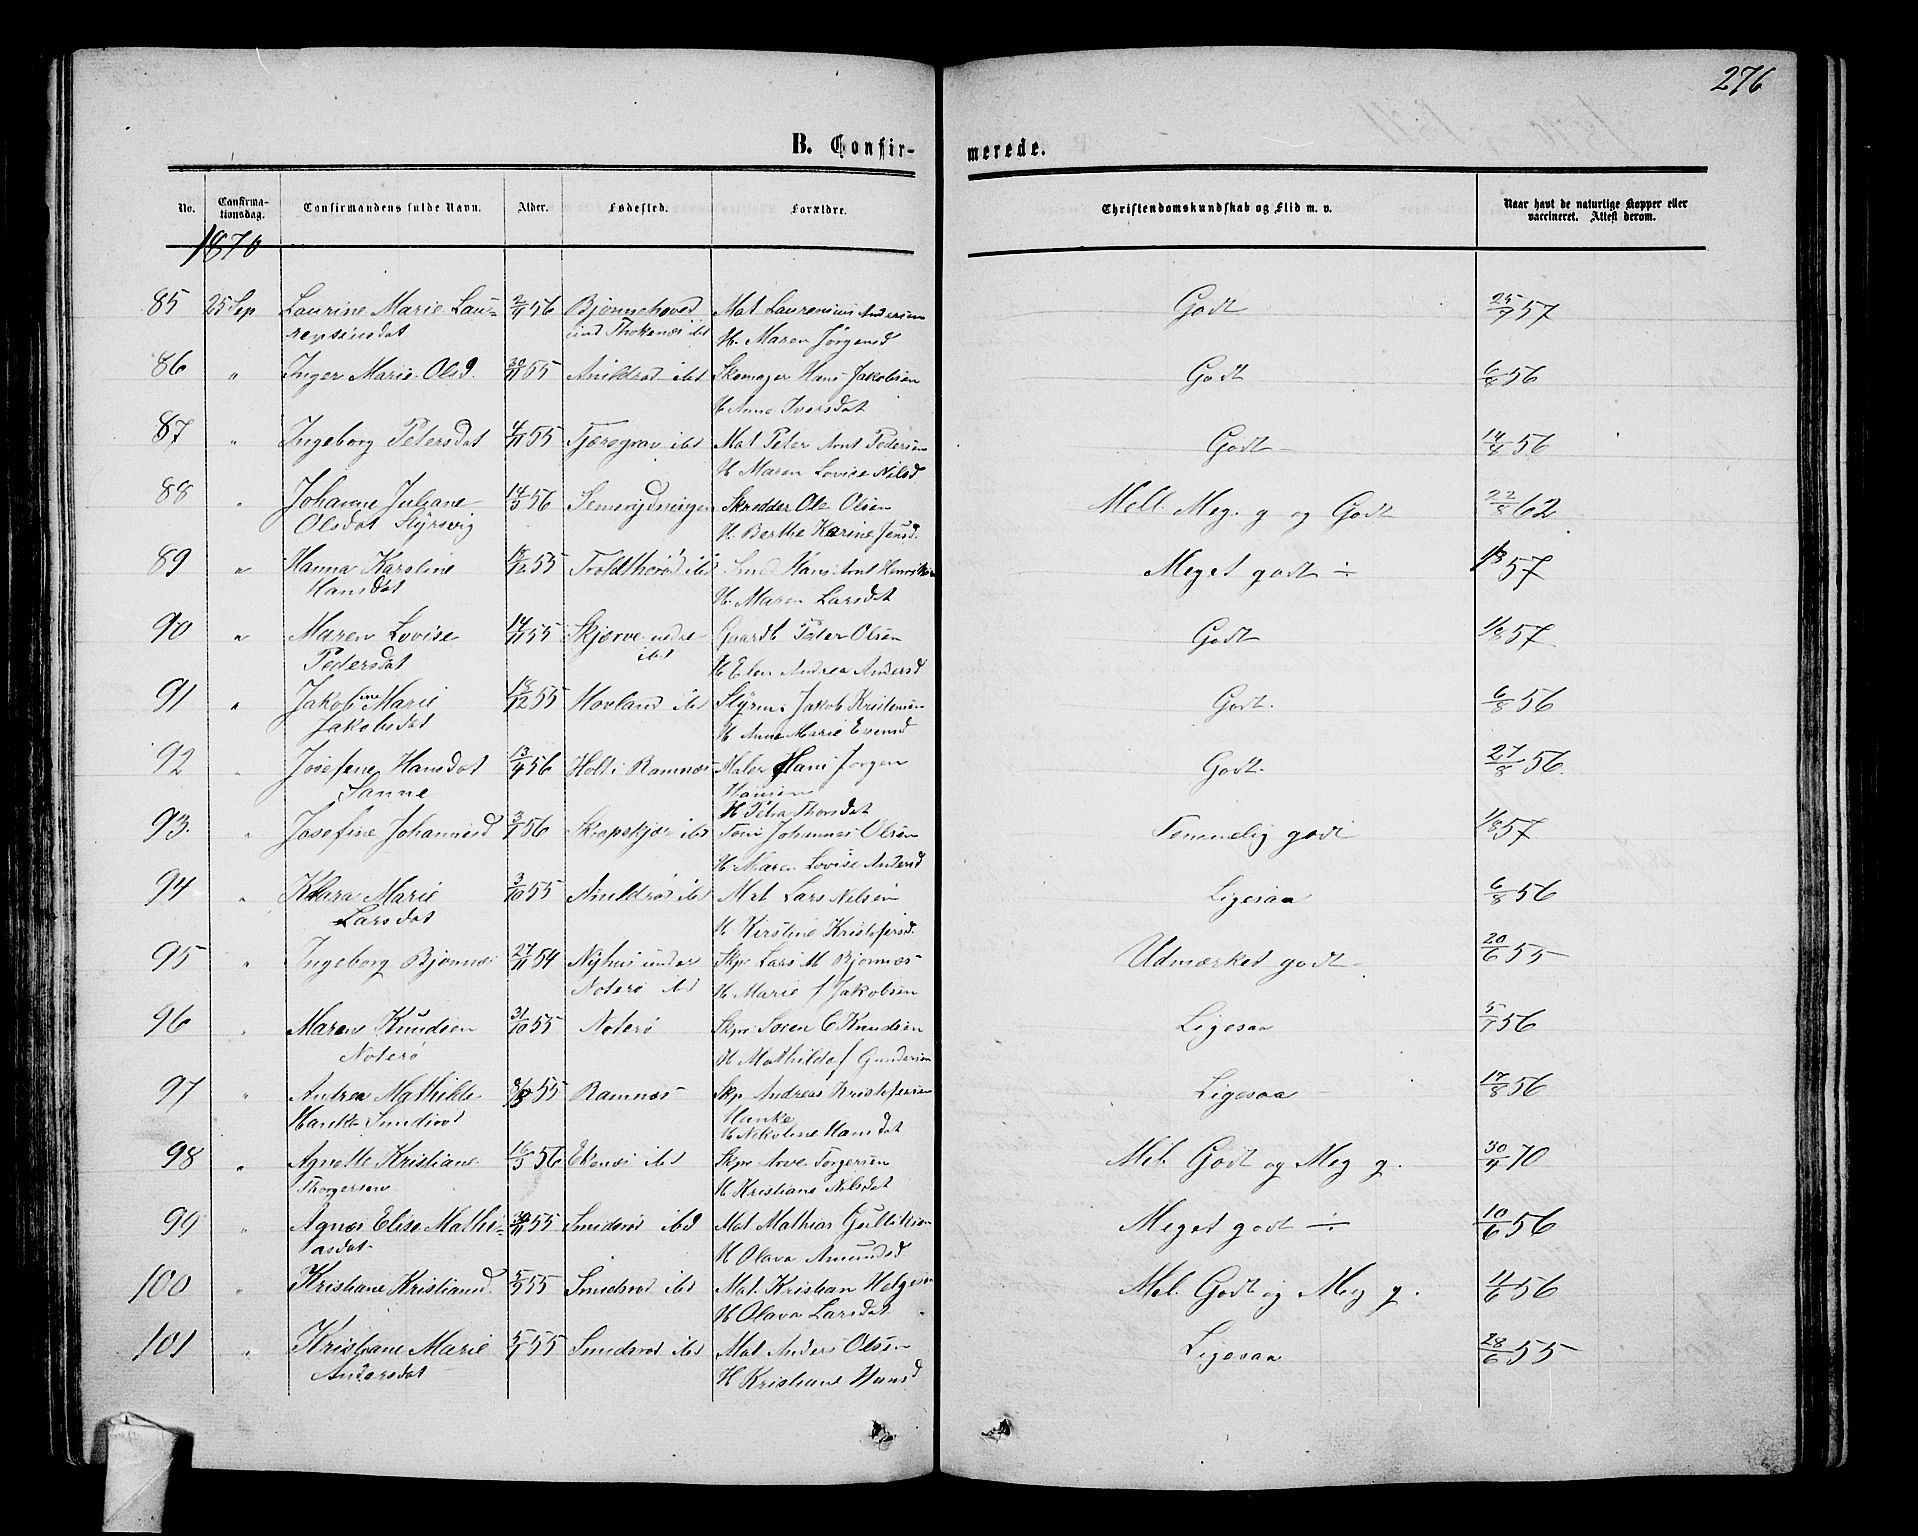 276
B. Confirmerede.
No. Confirmationsdag. Confirmandens fulde Navn. Alder. Fødested. Forældre. Christendomskundskab og Flid m. v. Naar havt de naturlige Kopper eller vaccineret. Attest derom.
1870
85 25 Sep Laurine Marie Lau- 2/4 56 Bjønnehoved Mat Laurensius Andersen Godt 25/7 57
rensinsdat ibd H. Maren Jørgensd
86 " Inger Marie Olsd. 30/11 55 ibd Skomager Hans Jakobsen Godt 6/8 56
H Anne Iversdat
87 " Ingeborg Petersdat 4/11 55 Tjæregrav ibd Mat Peter Arnt Pedersen Godt 14/4 56
H Maren Lovise Nilsd
88 " Johanne Juliane 14/3 56 Semsrydningen Skredder Ole Olsen Mell. Meg. g og Godt 22/8 62
Olsdat H. Berthe Karine Jensd.
89 " Hanna Karoline 18/12 55 ibd Smed Hans Arnt Henriksen Meget godt ÷ 57
Hansdat H. Maren Larsdat
90 " Maren Lovise 14/11 55 Skjerve nedre Gaardb Peter Olsen Godt 1/8 57
Pedersdat ibd H Elen Andrea Andersd
91 " Jakobine Marie 18/12 55 Hovland ibd Styrm. Jakob Kristensen Godt. 6/8 56
Jakobsdat H Anne Marie Evensd
92 " Josefine Hansdat 13/4 56 Holt i Ramnæs Maler Hans Jørgen Godt. 27/8 56.
Sanne Hansen
H Petra Thorsdat
93. " Josefine Johannesd 3/1 56 Skopskjær ibd Tom Johannes Olsen Temmelig godt 1/8 57
H. Maren Lovise Andersd
94 " Klara Marie 3/10 55 ibd Mat Lars Nilsen Ligesaa 6/8 56
Larsdat H Kirstine Kristofersd.
95 " Ingeborg Bjønnæs 27/11 54 Nyhus under Skpr Lars M Bjønnæs Udmærket godt 20/6 55
Noterø ibd H Marie f Jakobsen
96 " Maren Knudsen 31/10 55 Noterø Skpr Søren C Knudsen Ligesaa 5/7 56
Noterø H Mathilde f Gundersen
97 " Andrea Mathilde 55 Ramnæs Skp. Andreas Kristofersen Ligesaa 17/8 56
Hunke
H Nikoline Hansdat
98 " Agnette Kristiane 16/3 56 Ekenæs ibd Skpr Arve Torgersen Mel. Godt og Meg g. 30/4 70
Thorgersen H Kristiane Nilsdat
99 " Agnes Elise Mathi- 30/11 55 Smidsrød ibd Mat Mathias Gulliksen Meget godt ÷ 10/6 56
asdat H Olava Amundsd
100 " Kristiane Kristiansd. 5/9 55 Smidsrød ibd Mat. Kristian Helgesen Mel. Godt og Meg g. 11/6 56
H Olava Larsdat
101 " Kristiane Marie 5/1 55 Smidsrød ibd Mat Anders Olsen Ligesaa 28/6 55
Andersdat H Kristiane Hansd